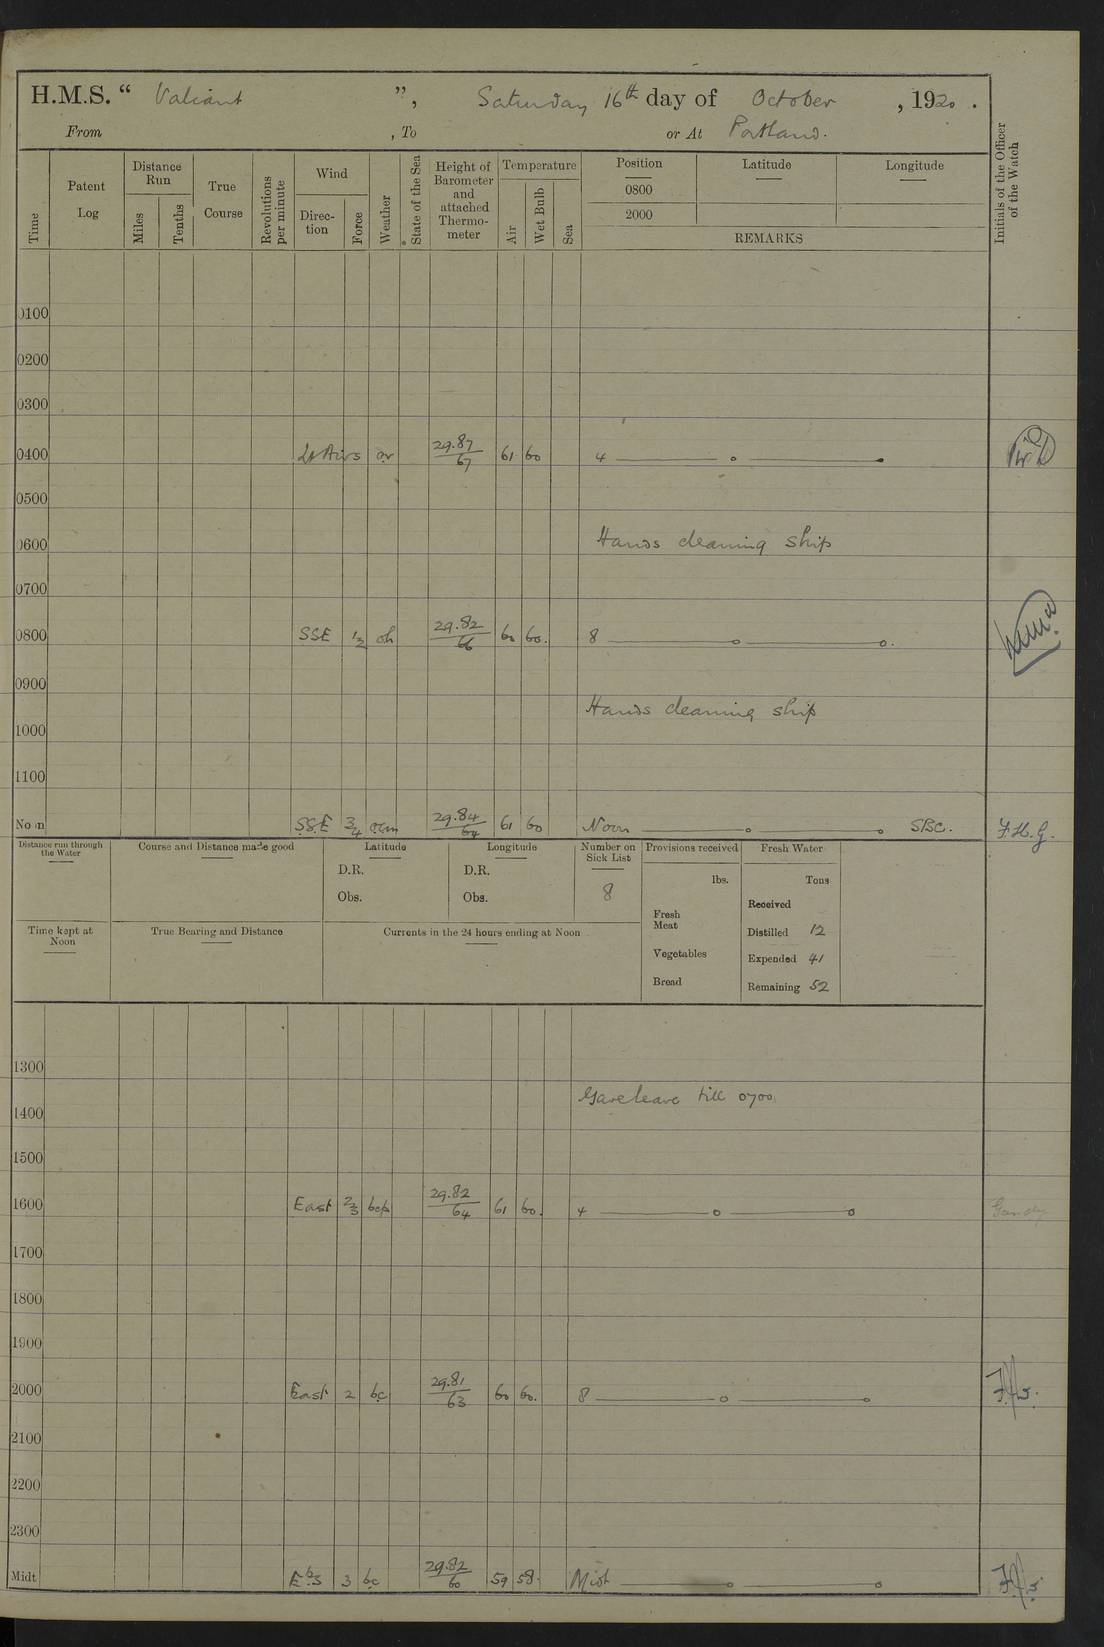 H.M.S. “ Valiant ”, Saturday 16th day of October , 1920 .
From , To or At Portland.
Time
Patent Log
Distance Run
Miles
Tenths
True Course
Revolutions per minute
Wind
Direction
Force
Weather
State of the Sea
Height of Barometer and attached Thermometer
Temperature
Air
Wet Bulb
Sea
Position Latitude Longitude
0800
2000
REMARKS
Initials of the Officer of the Watch
0100
0200
0300
0400 Lt Airs or 29.87/67 61 60 4
0500
0600 Hands cleaning ship
0700
0800 SSE 1/2 29.82/66 60. 8
0900
Hands cleaning ship
1000
1100
Noon SSE 3/4 29.84/64 61 60 Noon SBC. F.H.G.
Distance run through the Water
Course and Distance made good
Latitude
D.R.
Obs.
Longitude
D.R.
Obs.
Number on Sick List
8
Provisions received
lbs.
Fresh Meat
Vegetables
Bread
Fresh Water
Tons
Received
Distilled 12
Expended 41
Remaining 52
Time kept at Noon
True Bearing and Distance
Currents in the 24 hours ending at Noon
1300
Gave leave till 0700
1400
1500
1600 East 2/3 bcp 29.82/64 61 60. 4
1700
1800
1900
2000 East 2 bc 29.81/63 60 60. 8
2100
2200
2300
Midt EbS 3 bc 29.82/60 59 58. Midt